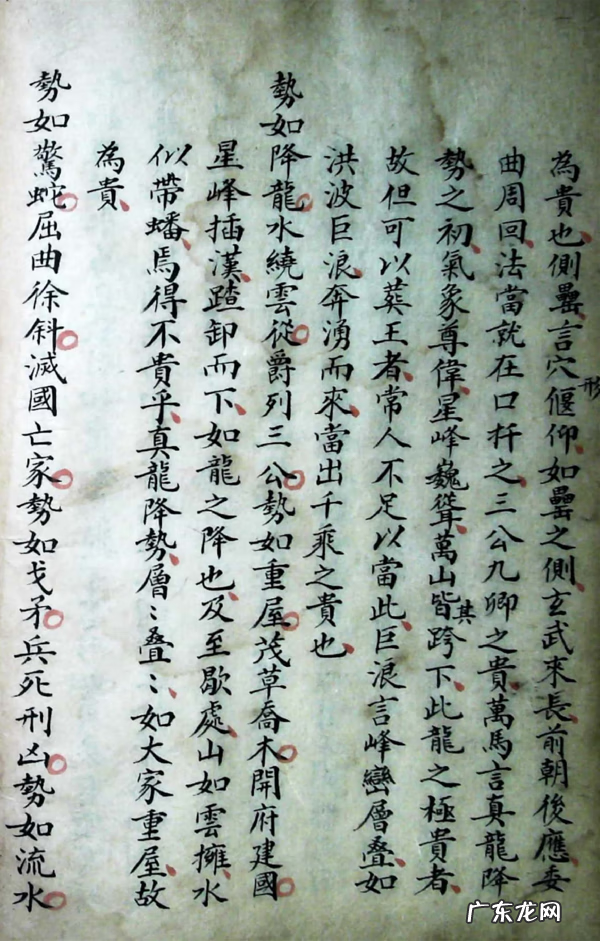 為貴也側罍言穴形偃仰如罍之側玄武來長前朝後應委
曲周回法當就在口杅之三公九卿之貴萬馬言真龍降
勢之初氣象尊偉星峰巍聳萬山皆跨其下此龍之極貴者
故但可以葬王者常人不足以當此巨浪言峰巒層叠如
洪波巨浪奔湧而來當出千乘之貴也
勢如降龍水繞雲從爵列三公勢如重屋茂草喬木開府建國
星峰插漢踏卸而下如龍之降也及至歇處山如雲擁水
似帶蟠焉得不貴乎真龍降勢層〻叠〻如大家重屋故
為貴
勢如驚蛇屈曲徐斜滅國亡家勢如戈矛兵死刑凶勢如流水
广东龙网